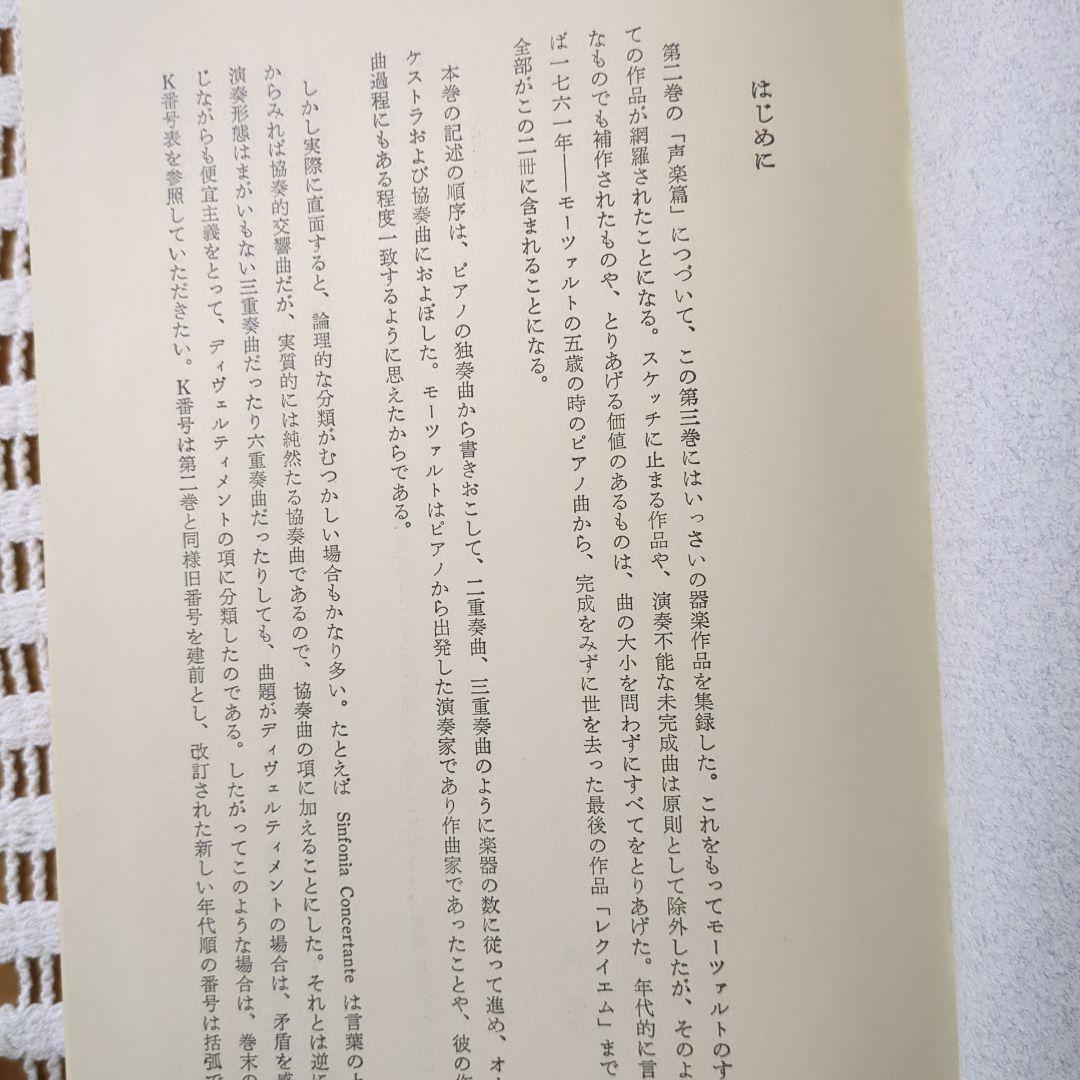 はじめに
第二巻の「声楽篇」につづいて、この第三巻にはいっさいの器楽作品を集録した。これをもってモーツァルトのす
ての作品が網羅されたことになる。スケッチに止まる作品や、演奏不能な未完成曲は原則として除外したが、そのよ
なものでも補作されたものや、とりあげる価値のあるものは、曲の大小を問わずにすべてをとりあげた。年代的に言
ば一七六一年――モーツァルトの五歳の時のピアノ曲から、完成をみずに世を去った最後の作品「レクイエム」まで
全部がこの二冊に含まれることになる。
本巻の記述の順序は、ピアノの独奏曲から書きおこして、二重奏曲、三重奏曲のように楽器の数に従って進め、オ
ケストラおよび協奏曲におよぼした。モーツァルトはピアノから出発した演奏家であり作曲家であったことや、彼の作
曲過程にもある程度一致するように思えたからである。
しかし実際に直面すると、論理的な分類がむつかしい場合もかなり多い。たとえば Sinfonia Concertante は言葉の上
からみれば協奏的交響曲だが、実質的には純然たる協奏曲であるので、協奏曲の項に加えることにした。それとは逆に
演奏形態はまがいもない三重奏曲だったり六重奏曲だったりしても、曲題がディヴェルティメントの場合は、矛盾を感
じながらも便宜主義をとって、ディヴェルティメントの項に分類したのである。したがってこのような場合は、巻末の
K番号表を参照していただきたい。K番号は第二巻と同様旧番号を建前とし、改訂された新しい年代順の番号は括弧で